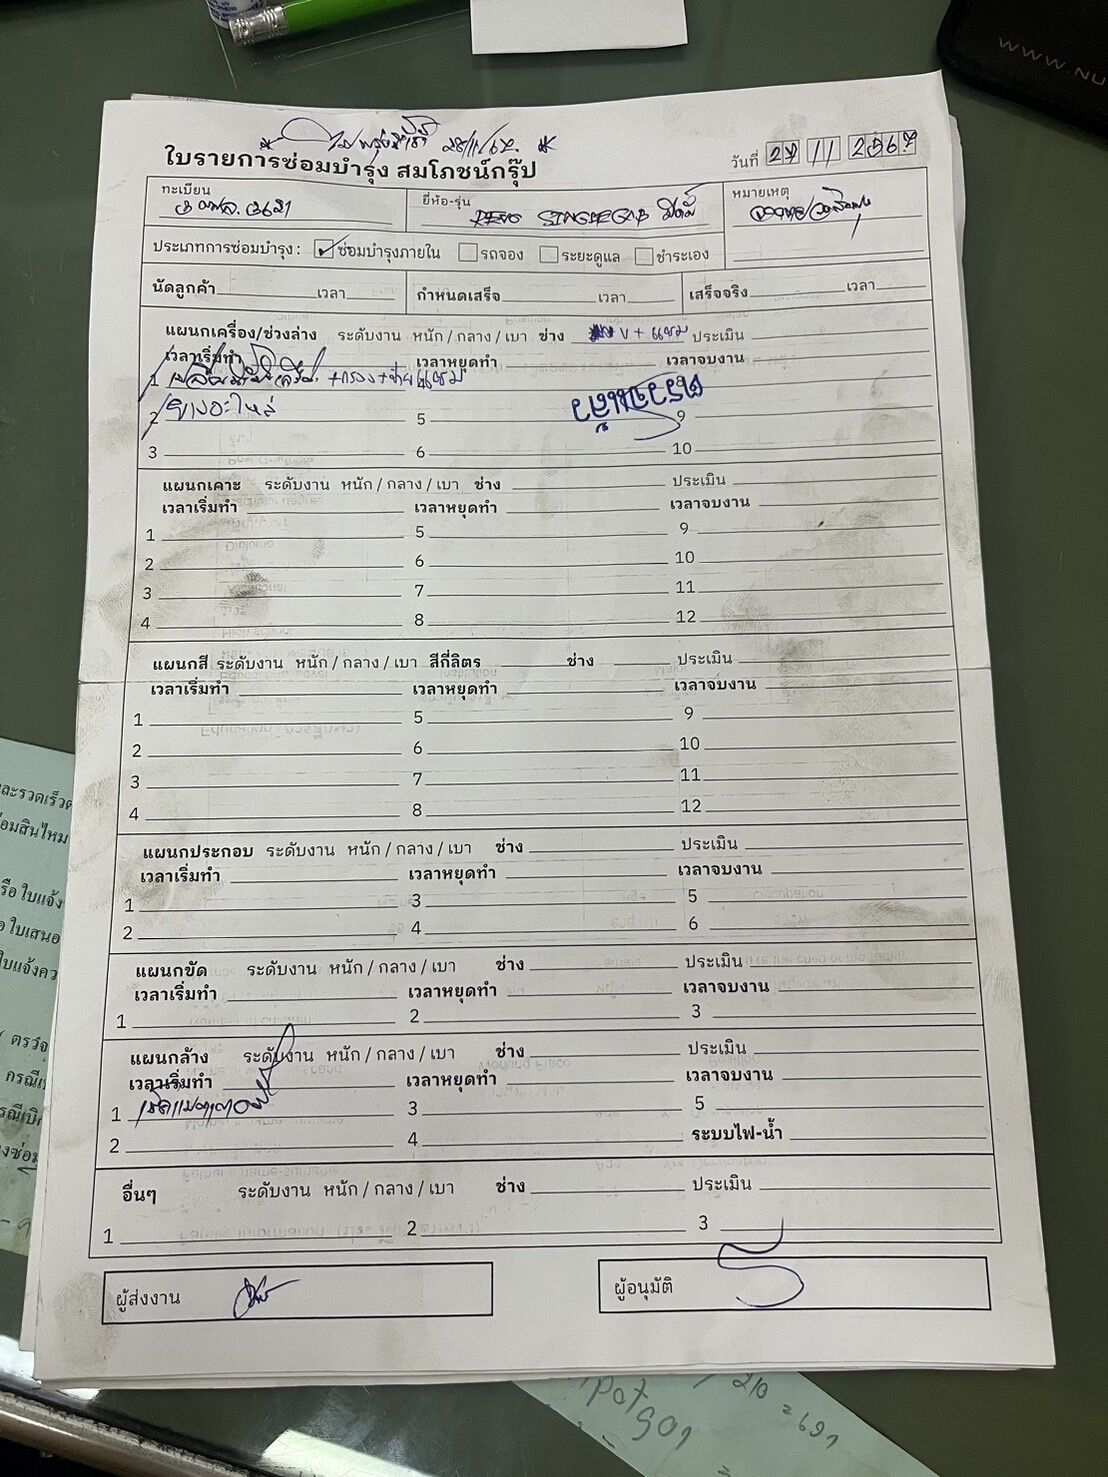 WWW.NU
28/11/67
ใบรายการซ่อมบำรุง สมโภชน์กรุ๊ป
วันที่ 27 11 2567
ทะเบียน
ยี่ห้อ-รุ่น REVO SINGLECAB
หมายเหตุ
ประเภทการซ่อมบำรุง : ซ่อมบำรุงภายใน รถจอง ระยะดูแล ชำระเอง
นัดลูกค้า เวลา กำหนดเสร็จ เวลา เสร็จจริง เวลา
แผนกเครื่อง/ช่วงล่าง ระดับงาน หนัก / กลาง / เบา ช่าง ประเมิน
เวลาเริ่มทำ เวลาหยุดทำ เวลาจบงาน
1 4 8
2 ยางอะไหล่ 5 9
ตรวจแล้ว
3 6 10
แผนกเคาะ ระดับงาน หนัก / กลาง / เบา ช่าง ประเมิน
เวลาเริ่มทำ เวลาหยุดทำ เวลาจบงาน
1 5 9
2 6 10
3 7 11
4 8 12
แผนกสี ระดับงาน หนัก / กลาง / เบา สีกี่ลิตร ช่าง ประเมิน
เวลาเริ่มทำ เวลาหยุดทำ เวลาจบงาน
1 5 9
2 6 10
3 7 11
4 8 12
แผนกประกอบ ระดับงาน หนัก / กลาง / เบา ช่าง ประเมิน
เวลาเริ่มทำ เวลาหยุดทำ เวลาจบงาน
1 3 5
2 4 6
แผนกขัด ระดับงาน หนัก / กลาง / เบา ช่าง ประเมิน
เวลาเริ่มทำ เวลาหยุดทำ เวลาจบงาน
1 2 3
แผนกล้าง ระดับงาน หนัก / กลาง / เบา ช่าง ประเมิน
เวลาเริ่มทำ เวลาหยุดทำ เวลาจบงาน
1 3 5
2 4 ระบบไฟ-น้ำ
อื่นๆ ระดับงาน หนัก / กลาง / เบา ช่าง ประเมิน
1 2 3
ผู้ส่งงาน
ผู้อนุมัติ